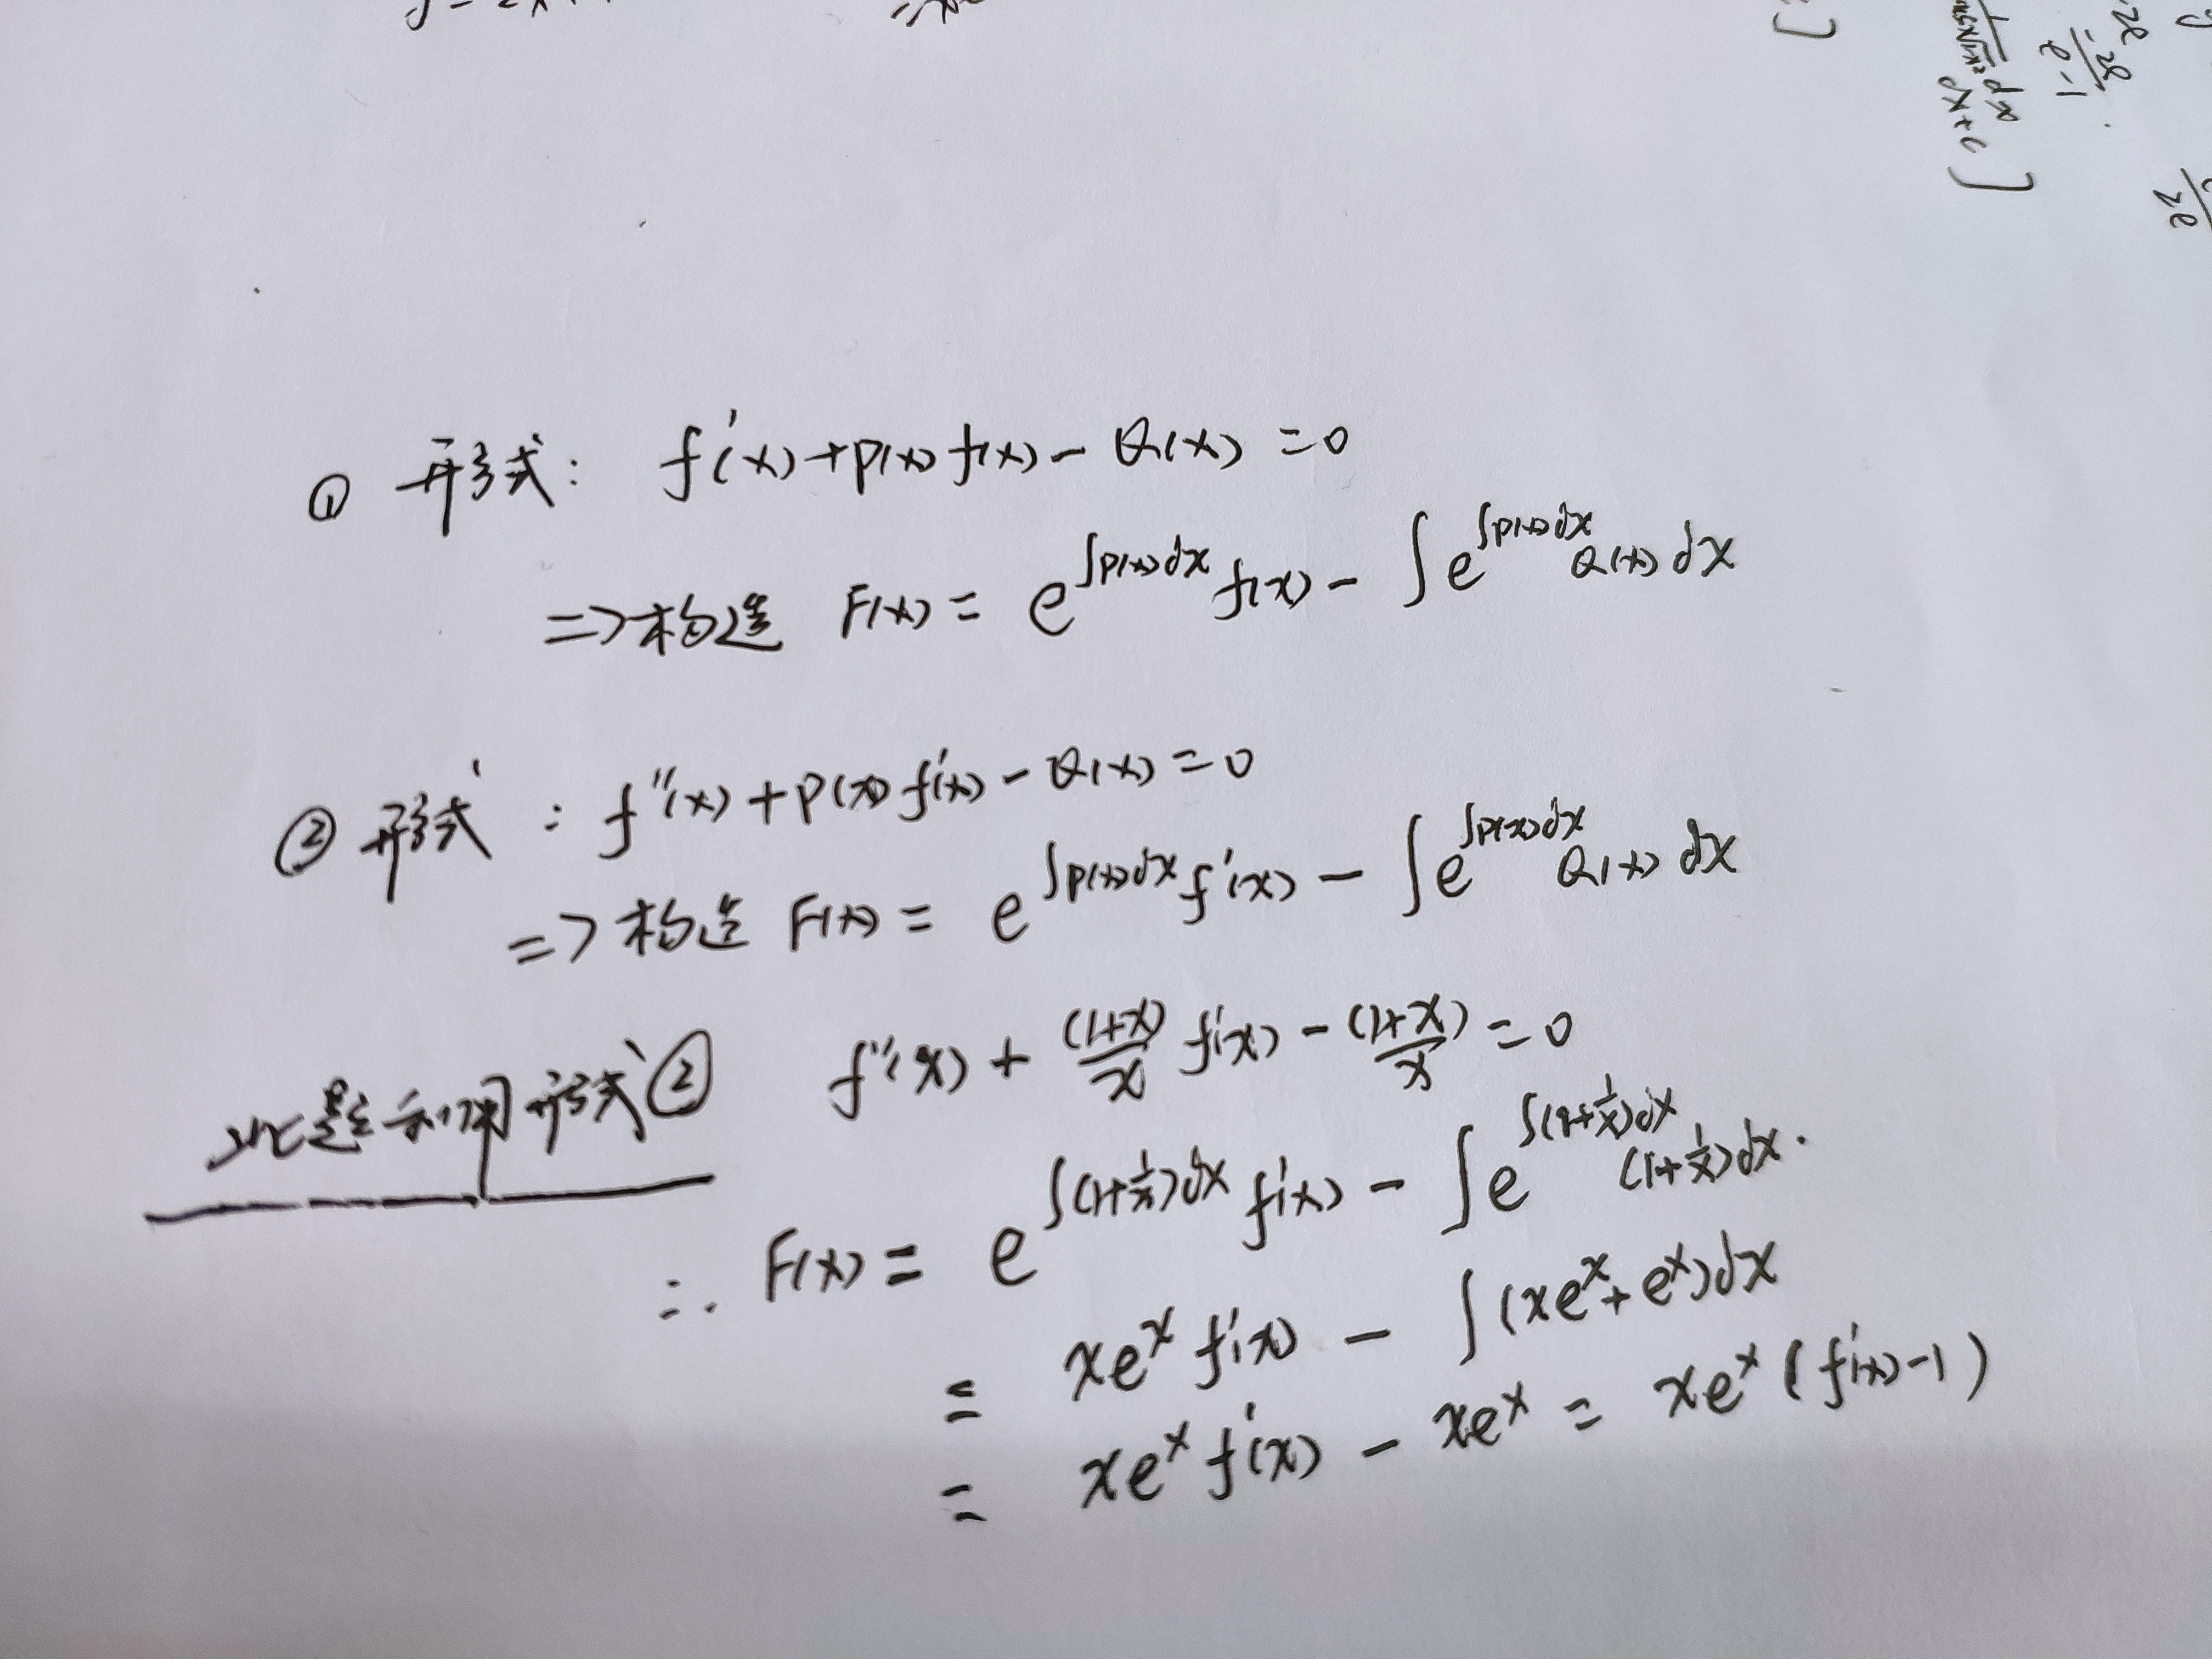 ① 形式: f'(x)+P(x)f(x)-Q(x)=0
=>构造 F(x)= e^{∫P(x)dx} f(x) - ∫e^{∫P(x)dx} Q(x)dx
② 形式: f''(x)+P(x)f'(x)-Q(x)=0
=>构造 F(x)= e^{∫P(x)dx} f'(x) - ∫e^{∫P(x)dx} Q(x)dx
此题利用形式② f''(x)+\frac{(1+x)}{x}f'(x)-\frac{(1+x)}{x}=0
∴ F(x)= e^{∫(1+\frac{1}{x})dx} f'(x) - ∫e^{∫(1+\frac{1}{x})dx} (1+\frac{1}{x})dx.
= xe^x f'(x) - ∫(xe^x+e^x)dx
= xe^x f'(x) - xe^x = xe^x(f'(x)-1)